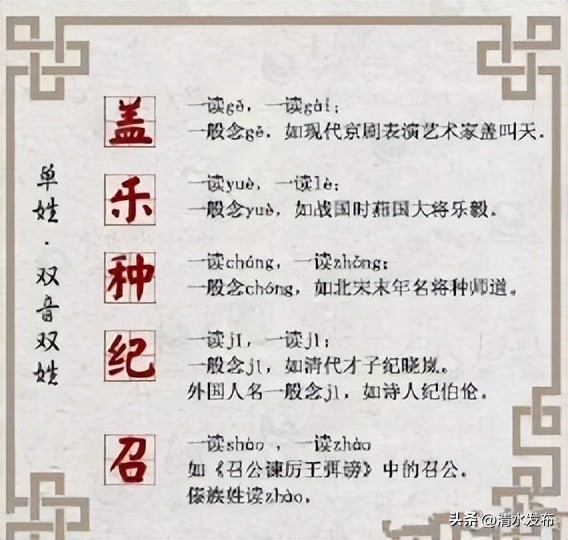 单姓·双音双姓
盖
一读gě，一读gài；
一般念gě，如现代京剧表演艺术家盖叫天．
乐
一读yuè，一读lè；
一般念yuè，如战国时燕国大将乐毅。
种
一读chóng，一读zhǒng；
一般念chóng，如北宋末年名将种师道。
纪
一读jǐ，一读jì；
一般念jǐ，如清代才子纪晓岚。
外国人名一般念jì，如诗人纪伯伦。
召
一读shào ，一读zhào
如《召公谏厉王弭谤》中的召公。
傣族姓读zhào。
头条 @清水发布